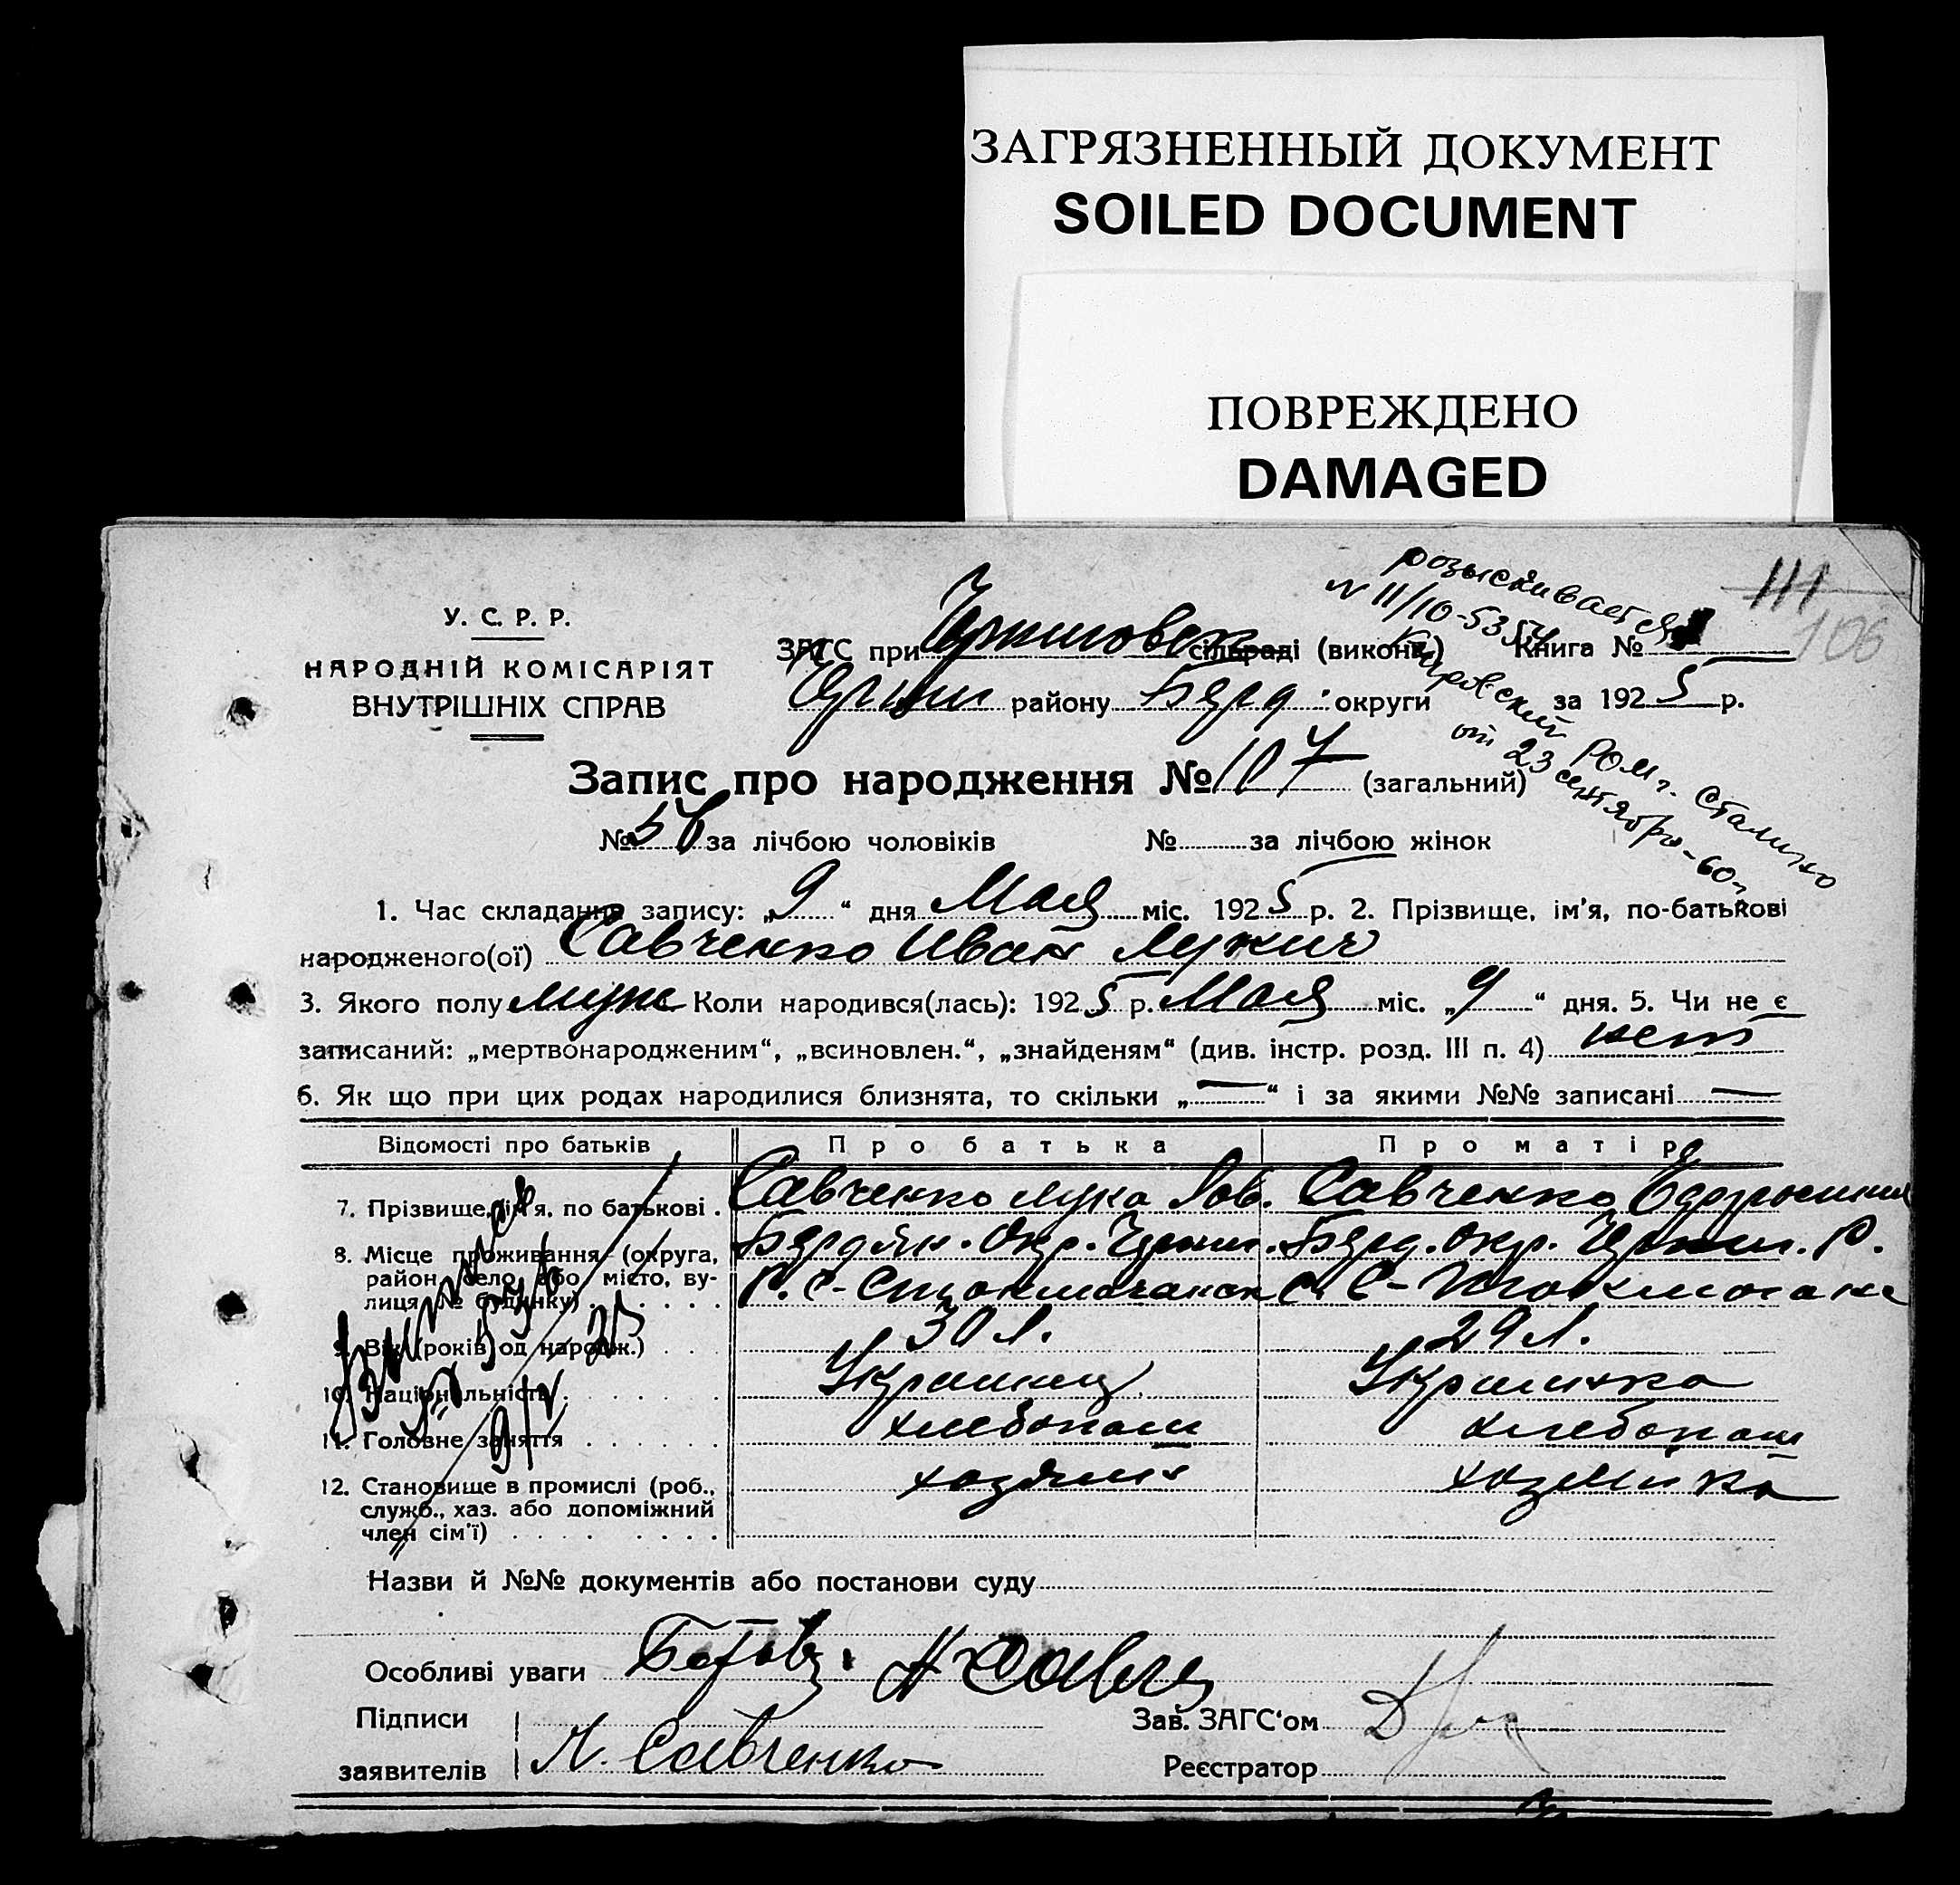 ЗАГРЯЗНЕННЫЙ ДОКУМЕНТ
SOILED DOCUMENT
ПОВРЕЖДЕНО
DAMAGED
розыскивается
N 11/10-53
Кировский РОМ г. Сталино
от 23 сентября-60г.
111
106
У. С. Р. Р.
НАРОДНІЙ КОМІСАРІЯТ
ВНУТРІШНІХ СПРАВ
ЗАГС при сільраді (виконк.) Книга №
району Бърд. округи за 1925 р.
Запис про народження № 107 (загальний)
№ 56 за лічбою чоловіків № за лічбою жінок
1. Час складання запису: „9“ дня Мая міс. 1925 р. 2. Прізвище, ім'я, по-батькові
народженого(ої) Савченко Иван Лукич
3. Якого полу муж Коли народився(лась): 1925 р. Мая міс. „9“ дня. 5. Чи не є
записаний: „мертвонародженим“, „всиновлен.“, „знайденям“ (див. інстр. розд. III п. 4) нет
6. Як що при цих родах народилися близнята, то скільки „—“ і за якими №№ записані —
Відомості про батьків Про батька Про матір
7. Прізвище, ім'я, по батькові . Савченко Лука Савченко
8. Місце проживання (округа, Окр. Бърд. Окр. Р.
район, село, або місто, ву-
лиця, № будинку) . . . . . Р. С-
9. Вік (років од народж.) . . . 30 л. 29 л.
10. Національність . . . . . . Украинец Украинка
11. Головне заняття . . . . . . хлебопаш хлебопаш
12. Становище в промислі (роб., хозяин хозяйка
служб., хаз. або допоміжний
член сім'ї) . . . . . . . . .
Назви й №№ документів або постанови суду
Особливі уваги
Підписи Зав. ЗАГС'ом
заявителів Л. Савченко Реєстратор